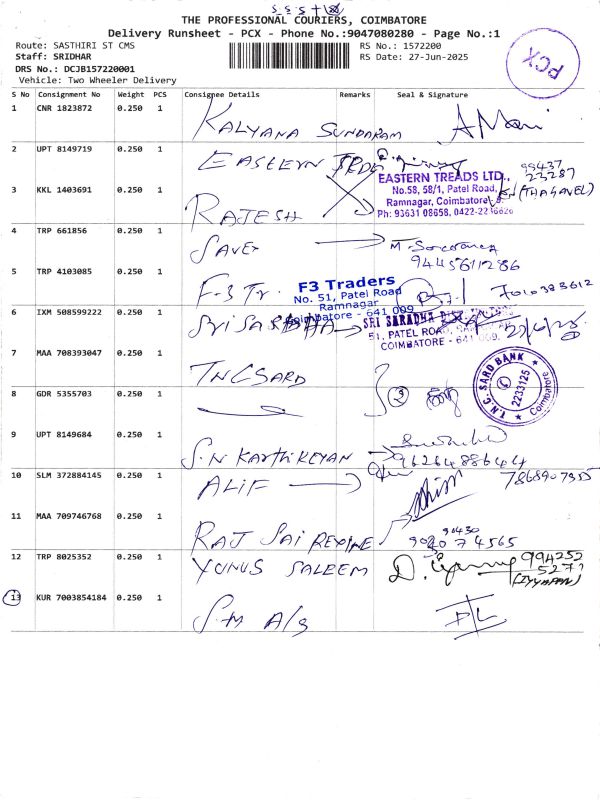 THE PROFESSIONAL COURIERS, COIMBATORE
Delivery Runsheet - PCX - Phone No.:9047080280 - Page No.:1
Route: SASTHIRI ST CMS
RS No.: 1572200
Staff: SRIDHAR
RS Date: 27-Jun-2025
DRS No.: DCJB157220001
Vehicle: Two Wheeler Delivery
PCX
S No Consignment No Weight PCS Consignee Details Remarks Seal & Signature
1 CNR 1823872 0.250 1 KALYANA SUNDARAM
2 UPT 8149719 0.250 1 EASTERN
EASTERN TREADS LTD.,
No.58, 58/1, Patel Road,
Ramnagar, Coimbatore
Ph: 93631 08658, 0422-2236626
99437
23287
(THANGAVEL)
3 KKL 1403691 0.250 1 RAJESH
4 TRP 661856 0.250 1 SAVEX
9445611286
5 TRP 4103085 0.250 1 F-3 Tr.
F3 Traders
No. 51, Patel Road
Ramnagar
Coimbatore - 641 009
7010383612
6 IXM 508599222 0.250 1 SRI SARADHA
SRI SARADHA
51, PATEL ROAD,
COIMBATORE - 641 009.
27/6/25
7 MAA 708393047 0.250 1 TNCSARD
T.N.C. SARD BANK
2233125
Coimbatore
8 GDR 5355703 0.250 1
2
9 UPT 8149684 0.250 1 S.N KARTHIKEYAN
9626488644
10 SLM 372884145 0.250 1 ALIF
11 MAA 709746768 0.250 1 RAJ SAI REXINE
94430
74565
12 TRP 8025352 0.250 1 YUNUS SALEEM
994252
(IYYAPPAN)
13 KUR 7003854184 0.250 1 S.M A/S